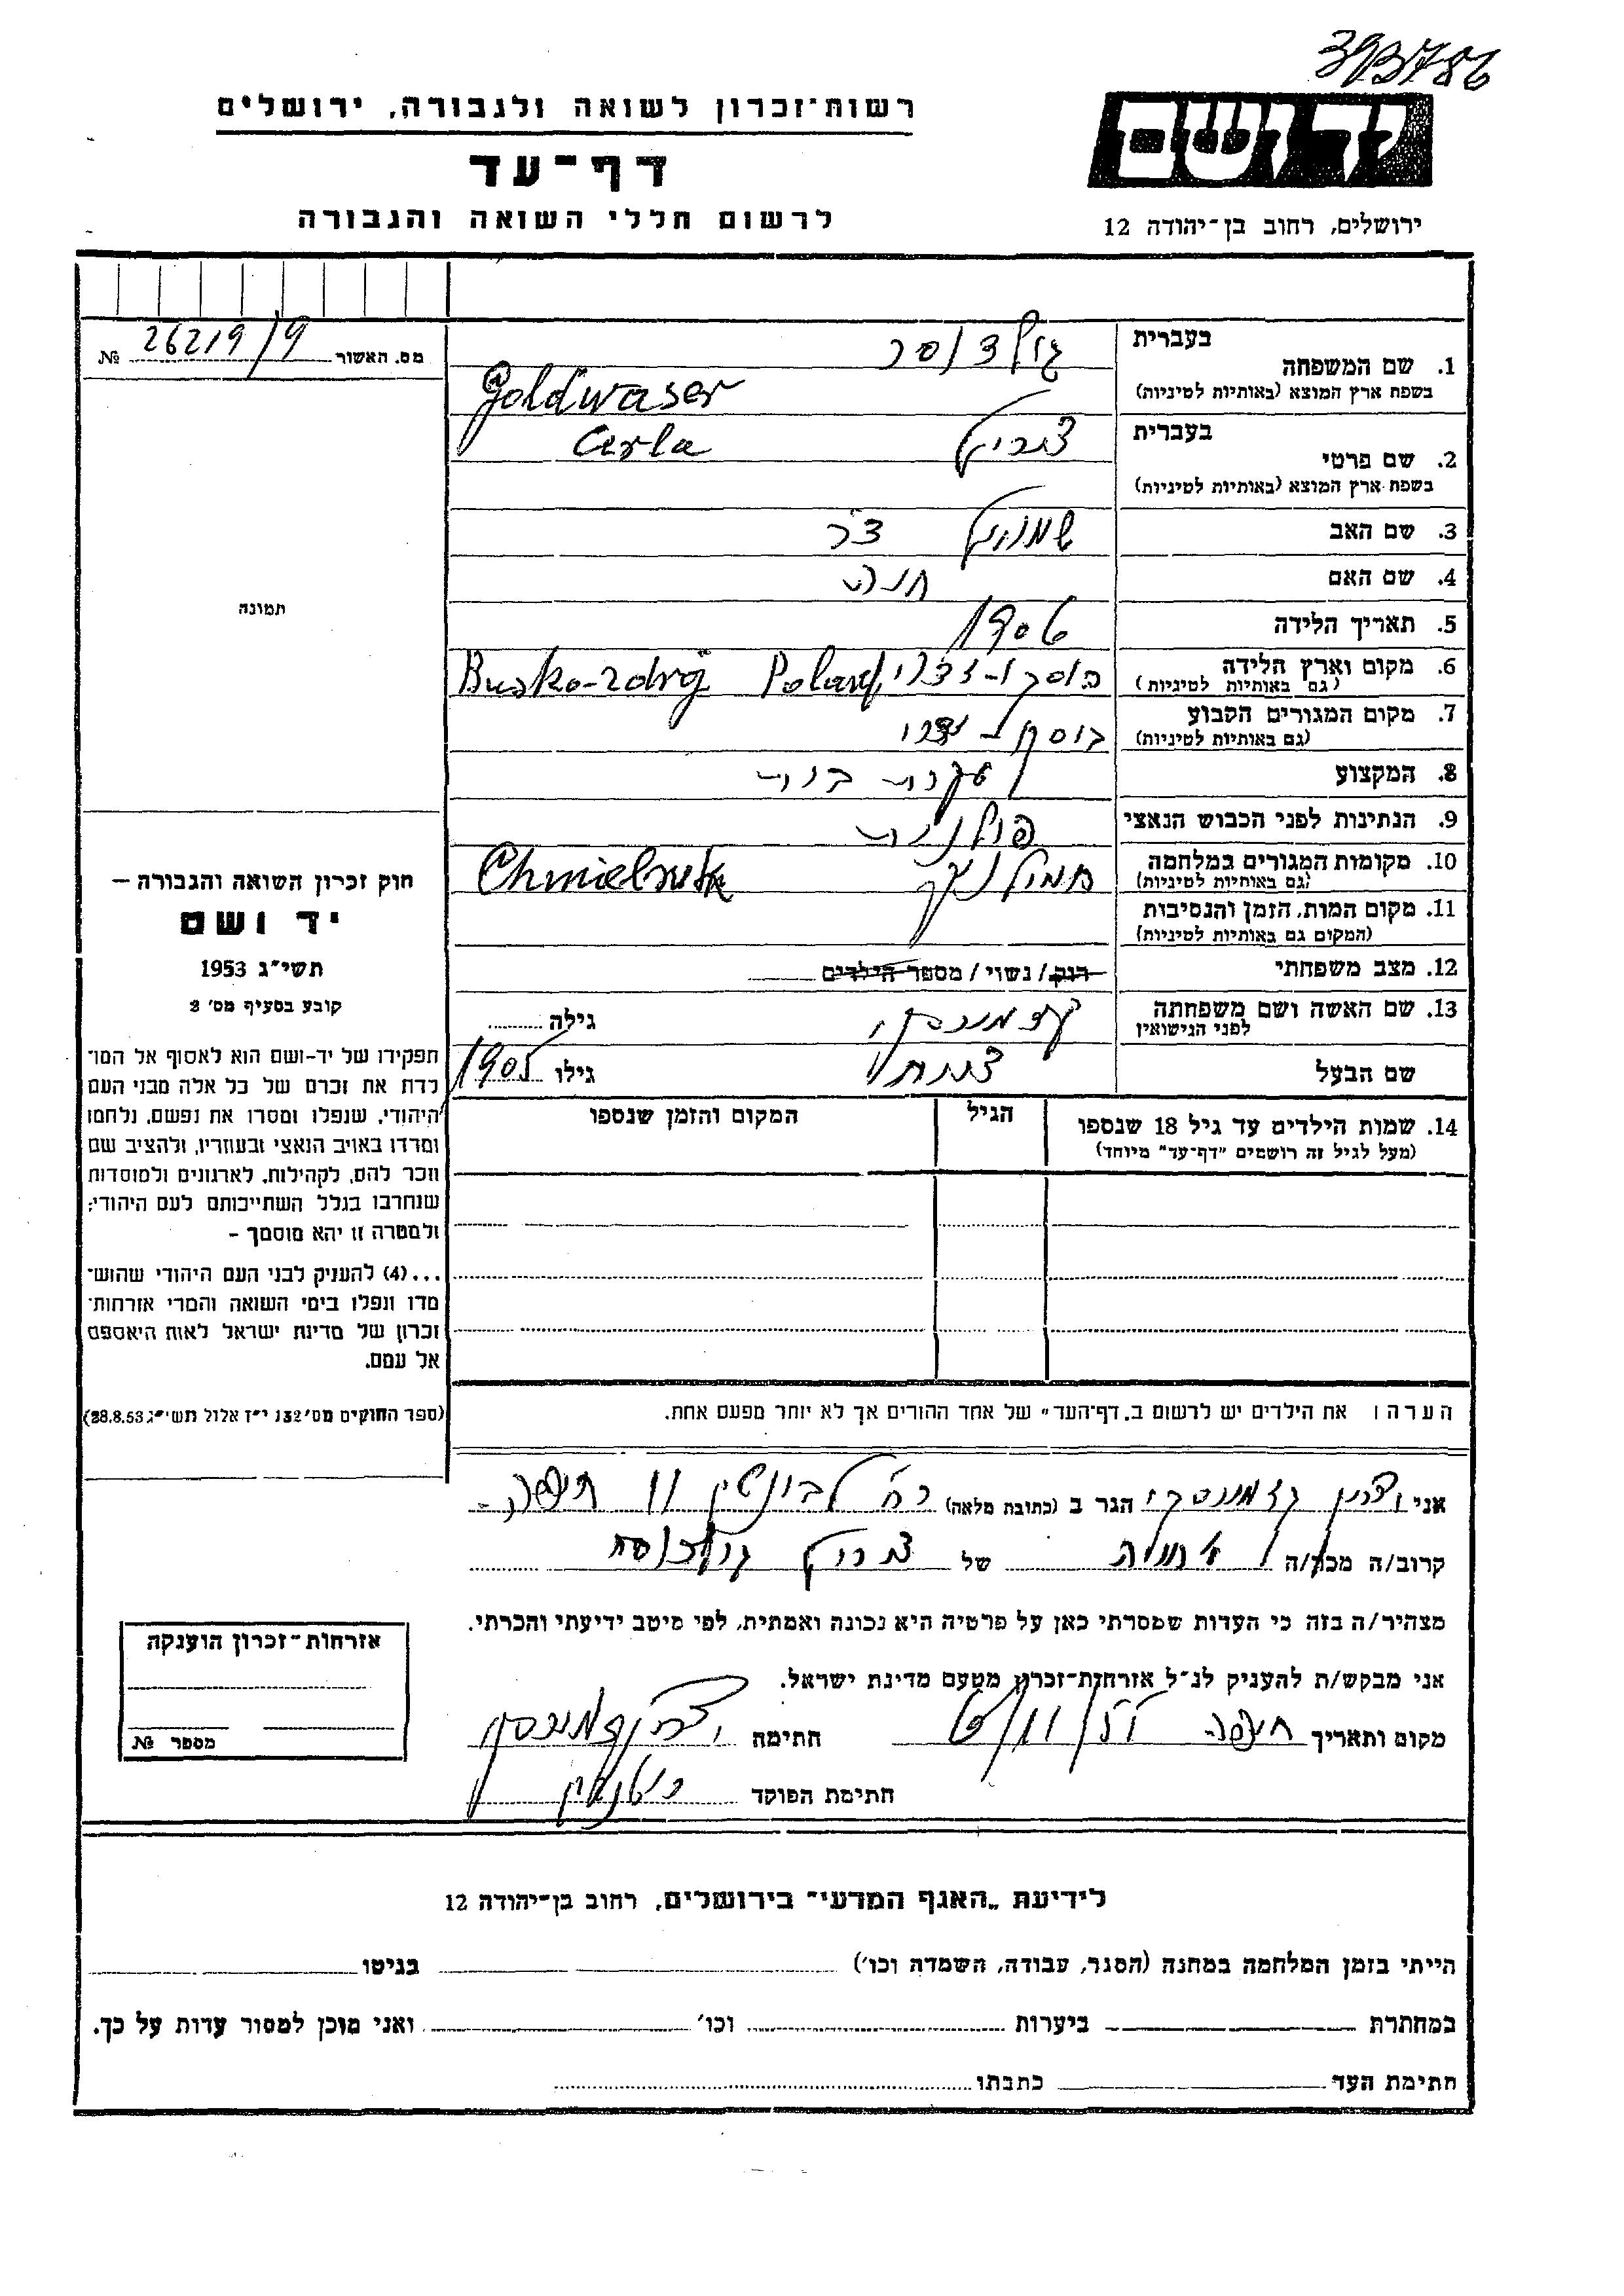 393786
רשות־זכרון לשואה ולגבורה, ירושלים
דף־עד
לרשום חללי השואה והגבורה
יד ושם
ירושלים, רחוב בן־יהודה 12
מס. האשור 26219/9 №
תמונה
חוק זכרון השואה והגבורה —
יד ושם
תשי״ג 1953
קובע בסעיף מס' 2
תפקידו של יד-ושם הוא לאסוף אל המו־
לדת את זכרם של כל אלה מבני העם
היהודי, שנפלו ומסרו את נפשם, נלחמו
ומרדו באויב הנאצי ובעוזריו, ולהציב שם
וזכר להם, לקהילות, לארגונים ולמוסדות
שנחרבו בגלל השתייכותם לעם היהודי;
ולמטרה זו יהא מוסמך —
...(4) להעניק לבני העם היהודי שהוש־
מדו ונפלו בימי השואה והמרי אזרחות־
זכרון של מדינת ישראל לאות היאספם
אל עמם.
(ספר החוקים מס' 132, י״ז אלול תשי״ג 28.8.53)
בעברית
1. שם המשפחה
בשפת ארץ המוצא (באותיות לטיניות)
Goldwaser
בעברית
2. שם פרטי
בשפת ארץ המוצא (באותיות לטיניות)
3. שם האב שמואל
4. שם האם חנה
5. תאריך הלידה
6. מקום וארץ הלידה
(גם באותיות לטיניות) Poland
7. מקום המגורים הקבוע
(גם באותיות לטיניות)
8. המקצוע עקרת בית
9. הנתינות לפני הכבוש הנאצי פולנית
10. מקומות המגורים במלחמה חמילניק
(גם באותיות לטיניות) Chmielnik
11. מקום המות, הזמן והנסיבות
(המקום גם באותיות לטיניות)
12. מצב משפחתי רוק / נשוי / מספר הילדים
13. שם האשה ושם משפחתה
לפני הנישואין
גילה
שם הבעל
גילו 1905
14. שמות הילדים עד גיל 18 שנספו
(מעל לגיל זה רושמים "דף־עד" מיוחד)
הגיל
המקום והזמן שנספו
הערה: את הילדים יש לרשום ב„דף־העד" של אחד ההורים אך לא יותר מפעם אחת.
אני הגר ב (כתובת מלאה) 11 חיפה
קרוב/ה מכר/ה של
מצהיר/ה בזה כי העדות שמסרתי כאן על פרטיה היא נכונה ואמתית, לפי מיטב ידיעתי והכרתי.
אני מבקש/ת להעניק לנ״ל אזרחות־זכרון מטעם מדינת ישראל.
מקום ותאריך חיפה
חתימה
חתימת הפוקד
אזרחות־זכרון הוענקה
מספר №
לידיעת „האגף המדעי" בירושלים, רחוב בן־יהודה 12
הייתי בזמן המלחמה במחנה (הסגר, עבודה, השמדה וכו') בגיטו
במחתרת ביערות וכו' ואני מוכן למסור עדות על כך.
חתימת העד כתבתו